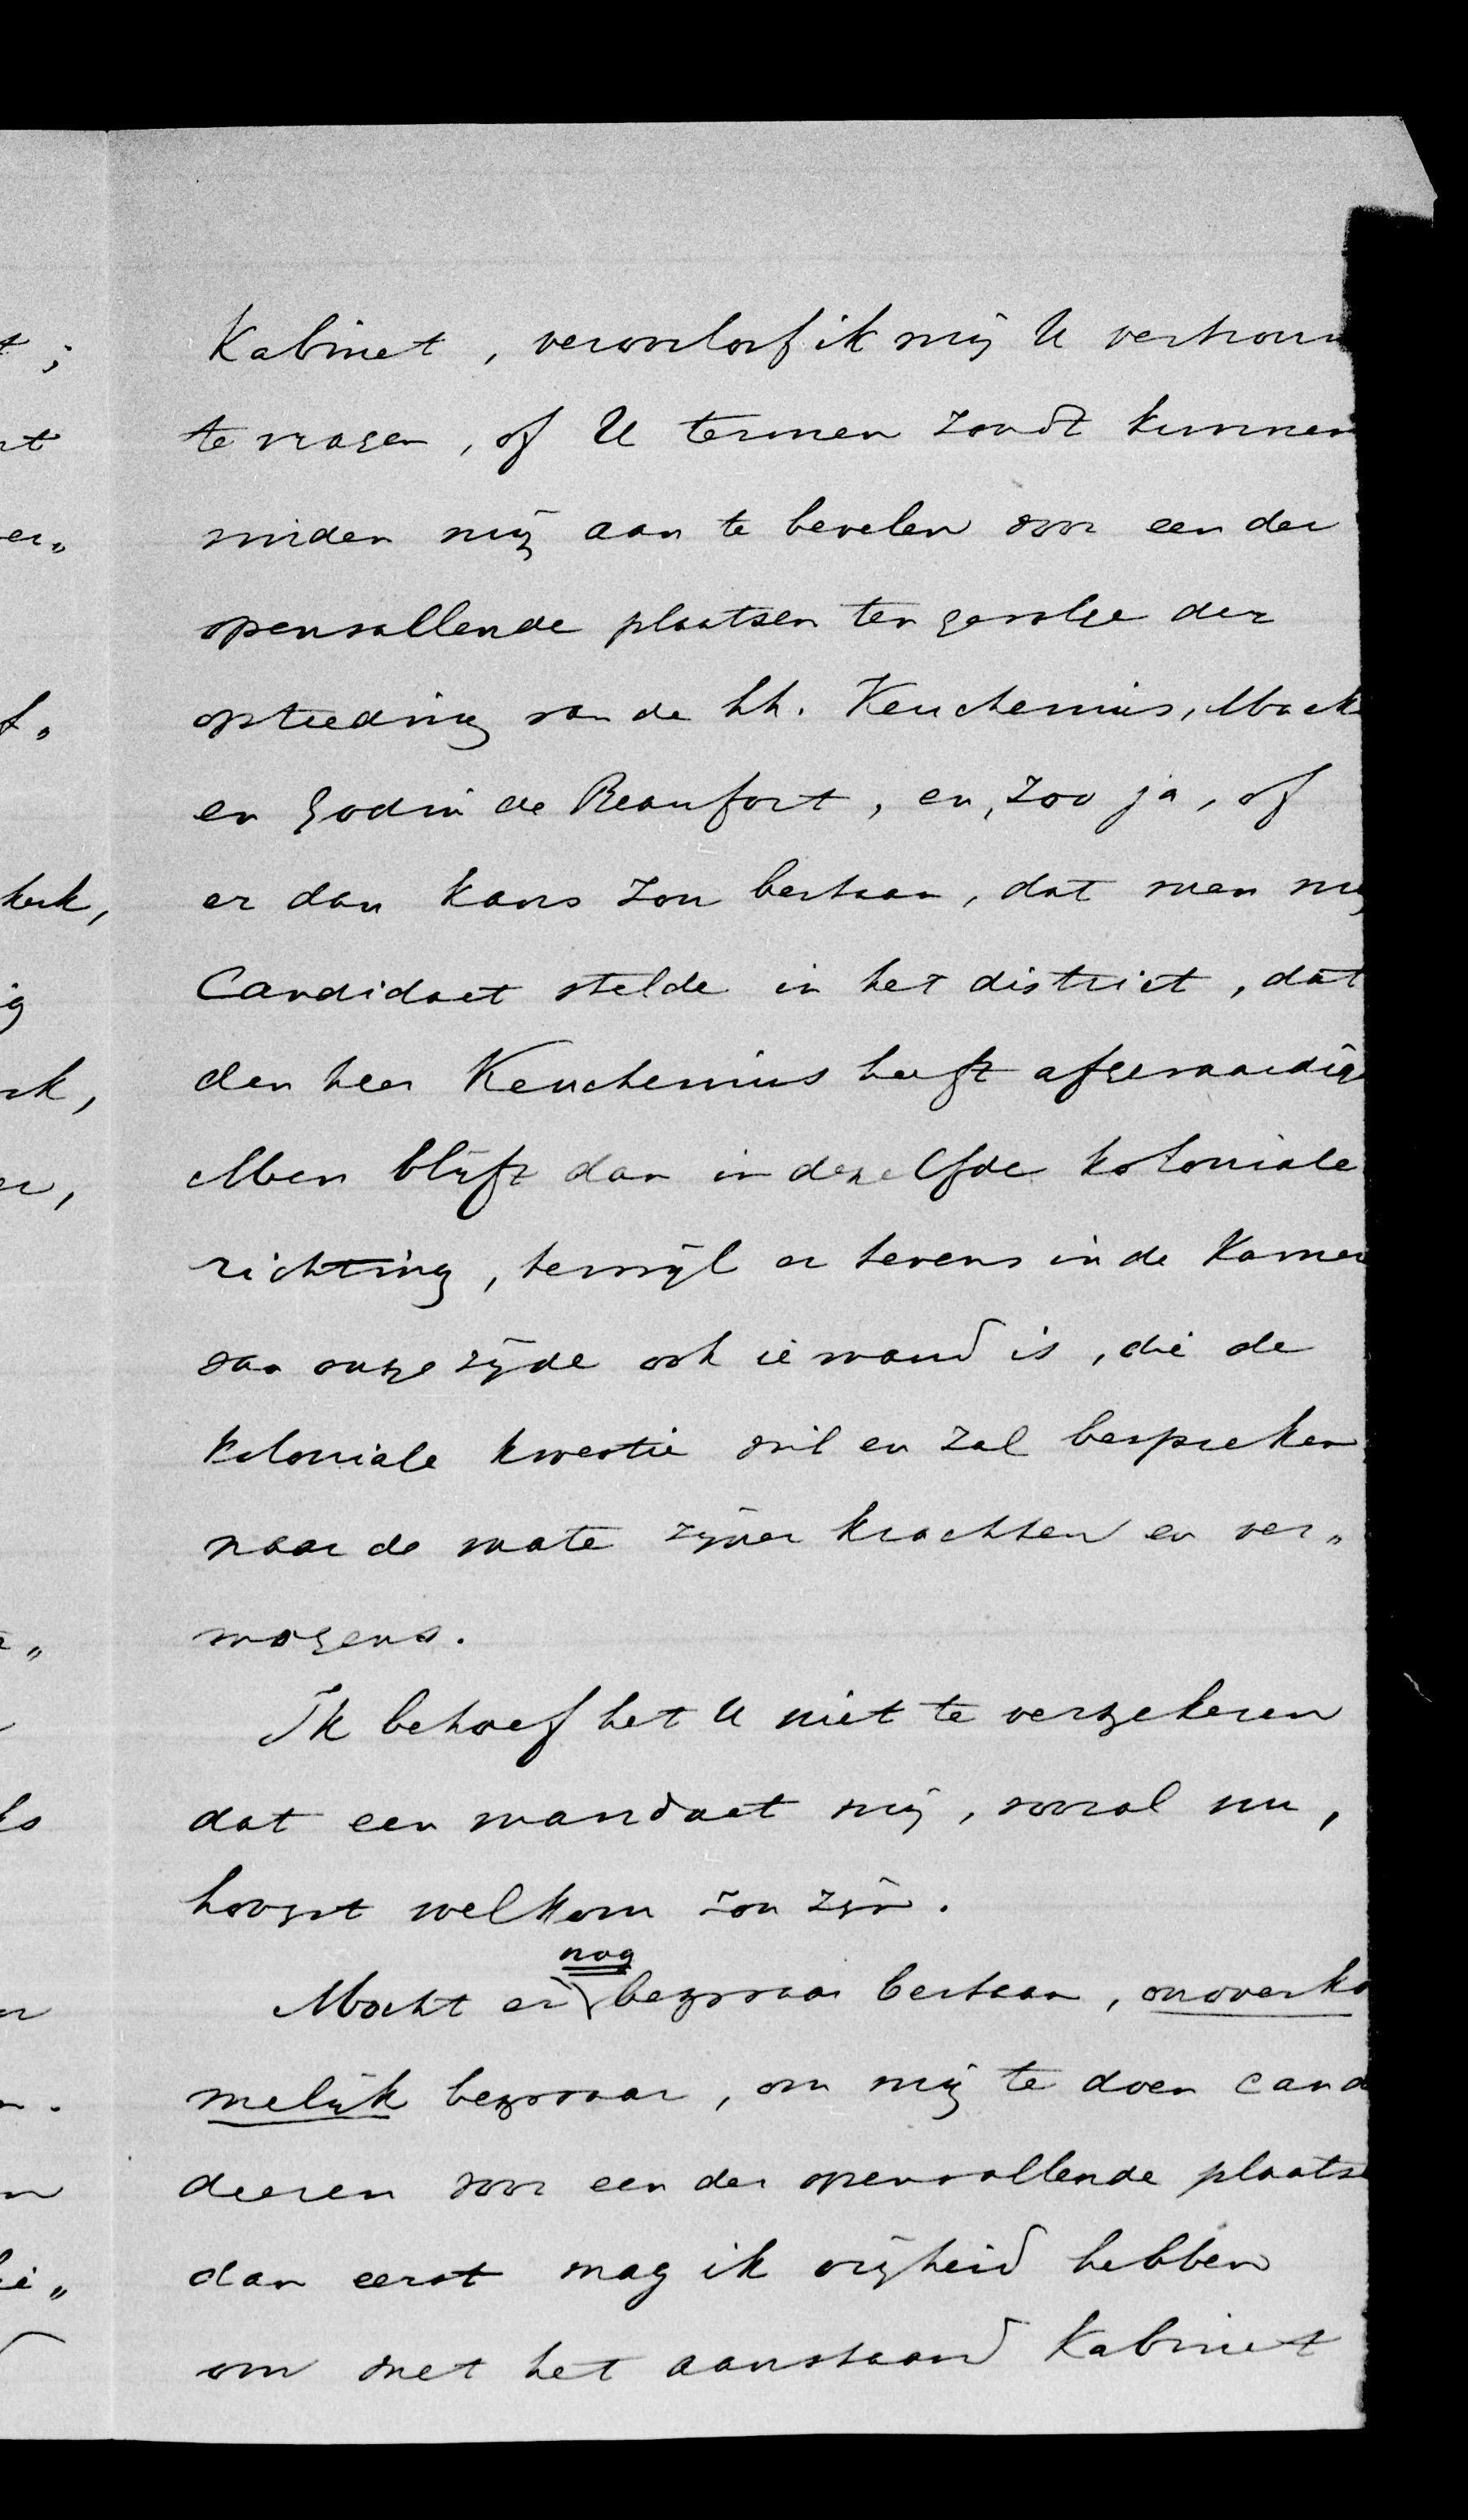 Kabinet, veroorloof ik mij U vertrouw
te vragen, of U termen zoudt kunnen
vinden mij aan te bevelen voor een der
openvallende plaatsen ten gevolge der
optreding van de hh. Keuchenius, Mack
en Godin de Beaufort, en, zoo ja, of
er dan kans zou bestaan, dat men mij
Candidaat stelde in het district, dat
den heer Keuchenius heeft afgevaardig
Men blijft dan in dezelfde koloniale
richting, terwijl er tevens in de Kamer
van onze zijde ook iemand is, die de
koloniale kwestie wil en zal bespreken
naar de mate zijner krachten en ver„
mogens.
Ik behoef het U niet te verzekeren
dat een mandaat mij, vooral nu,
hoogst welkom zou zijn.
nog
Mocht er bezwaar bestaan, onoverko
melijk bezwaar, om mij te doen cand
deeren voor een der openvallende plaatse
dan eerst mag ik vrijheid hebben
om met het aanstaand Kabinet